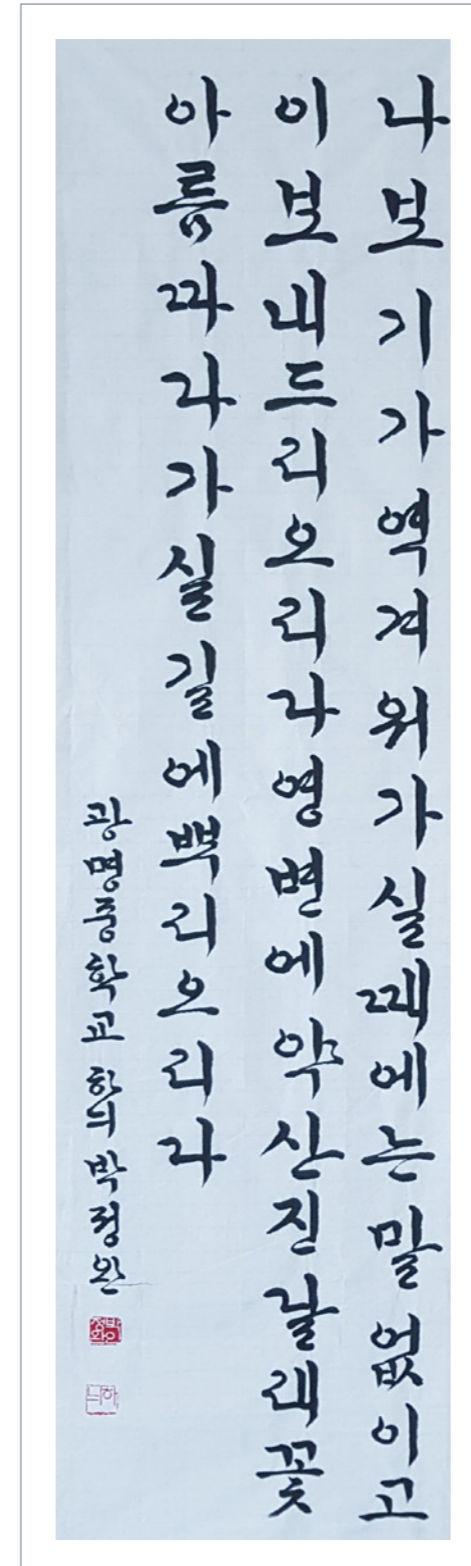 나보기가역겨워가실때에는말없이고
이보내드리오리다영변에약산진달래꽃
아름따다가실길에뿌리오리다
광명중학교 하늬 박정완